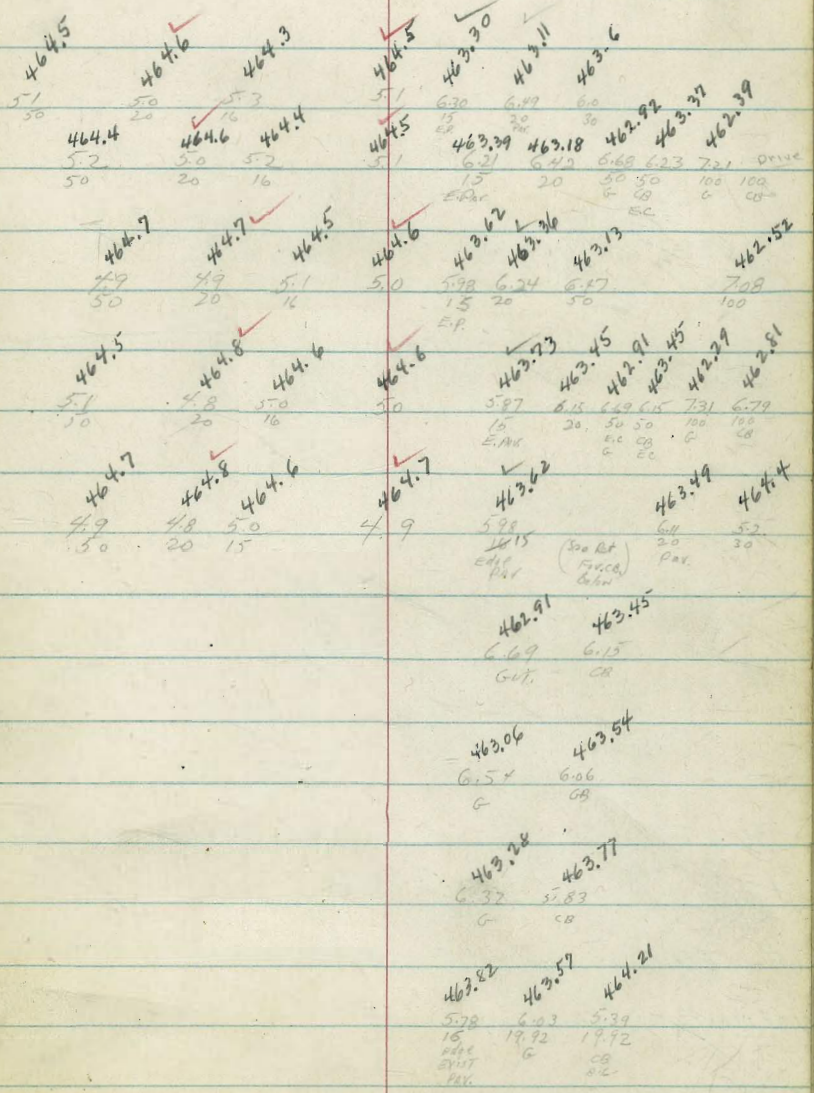 464.5 464.6 464.3 464.5 463.30 463.11 463.6
5.1 5.0 5.3 5.1 6.30 6.49 6.0
50 20 16 15 20 30
E.P. Pav.
464.4 464.6 464.4 464.5 463.39 463.18 462.92 463.37 462.39
5.2 5.0 5.2 5.1 6.21 6.42 6.68 6.23 7.21 Drive
50 20 16 15 20 50 50 100 100
E.Pav. G CB G CB
E.C
464.7 464.7 464.5 464.6 463.62 463.36 463.13 462.52
4.9 4.9 5.1 5.0 5.98 6.24 6.47 7.08
50 20 16 15 20 50 100
E.P.
464.5 464.8 464.6 464.6 463.73 463.45 462.91 463.45 462.29 462.81
5.1 4.8 5.0 5.0 5.87 6.15 6.69 6.15 7.31 6.79
50 20 16 15 20 50 50 100 100
E.Pav. E.C CB G CB
G EC
464.7 464.8 464.6 464.7 463.62 463.49 464.4
4.9 4.8 5.0 4.9 5.98 6.11 5.2
50 20 15 15 20 30
Edge (See Rdt Pav.
Pav For CB,
Below)
462.91 463.45
6.69 6.15
Gut. CB
463.06 463.54
6.54 6.06
G CB
463.28 463.77
6.32 5.83
G CB
463.82 463.57 464.21
5.78 6.03 5.39
15 19.92 19.92
Edge G CB
Exist
Pav.